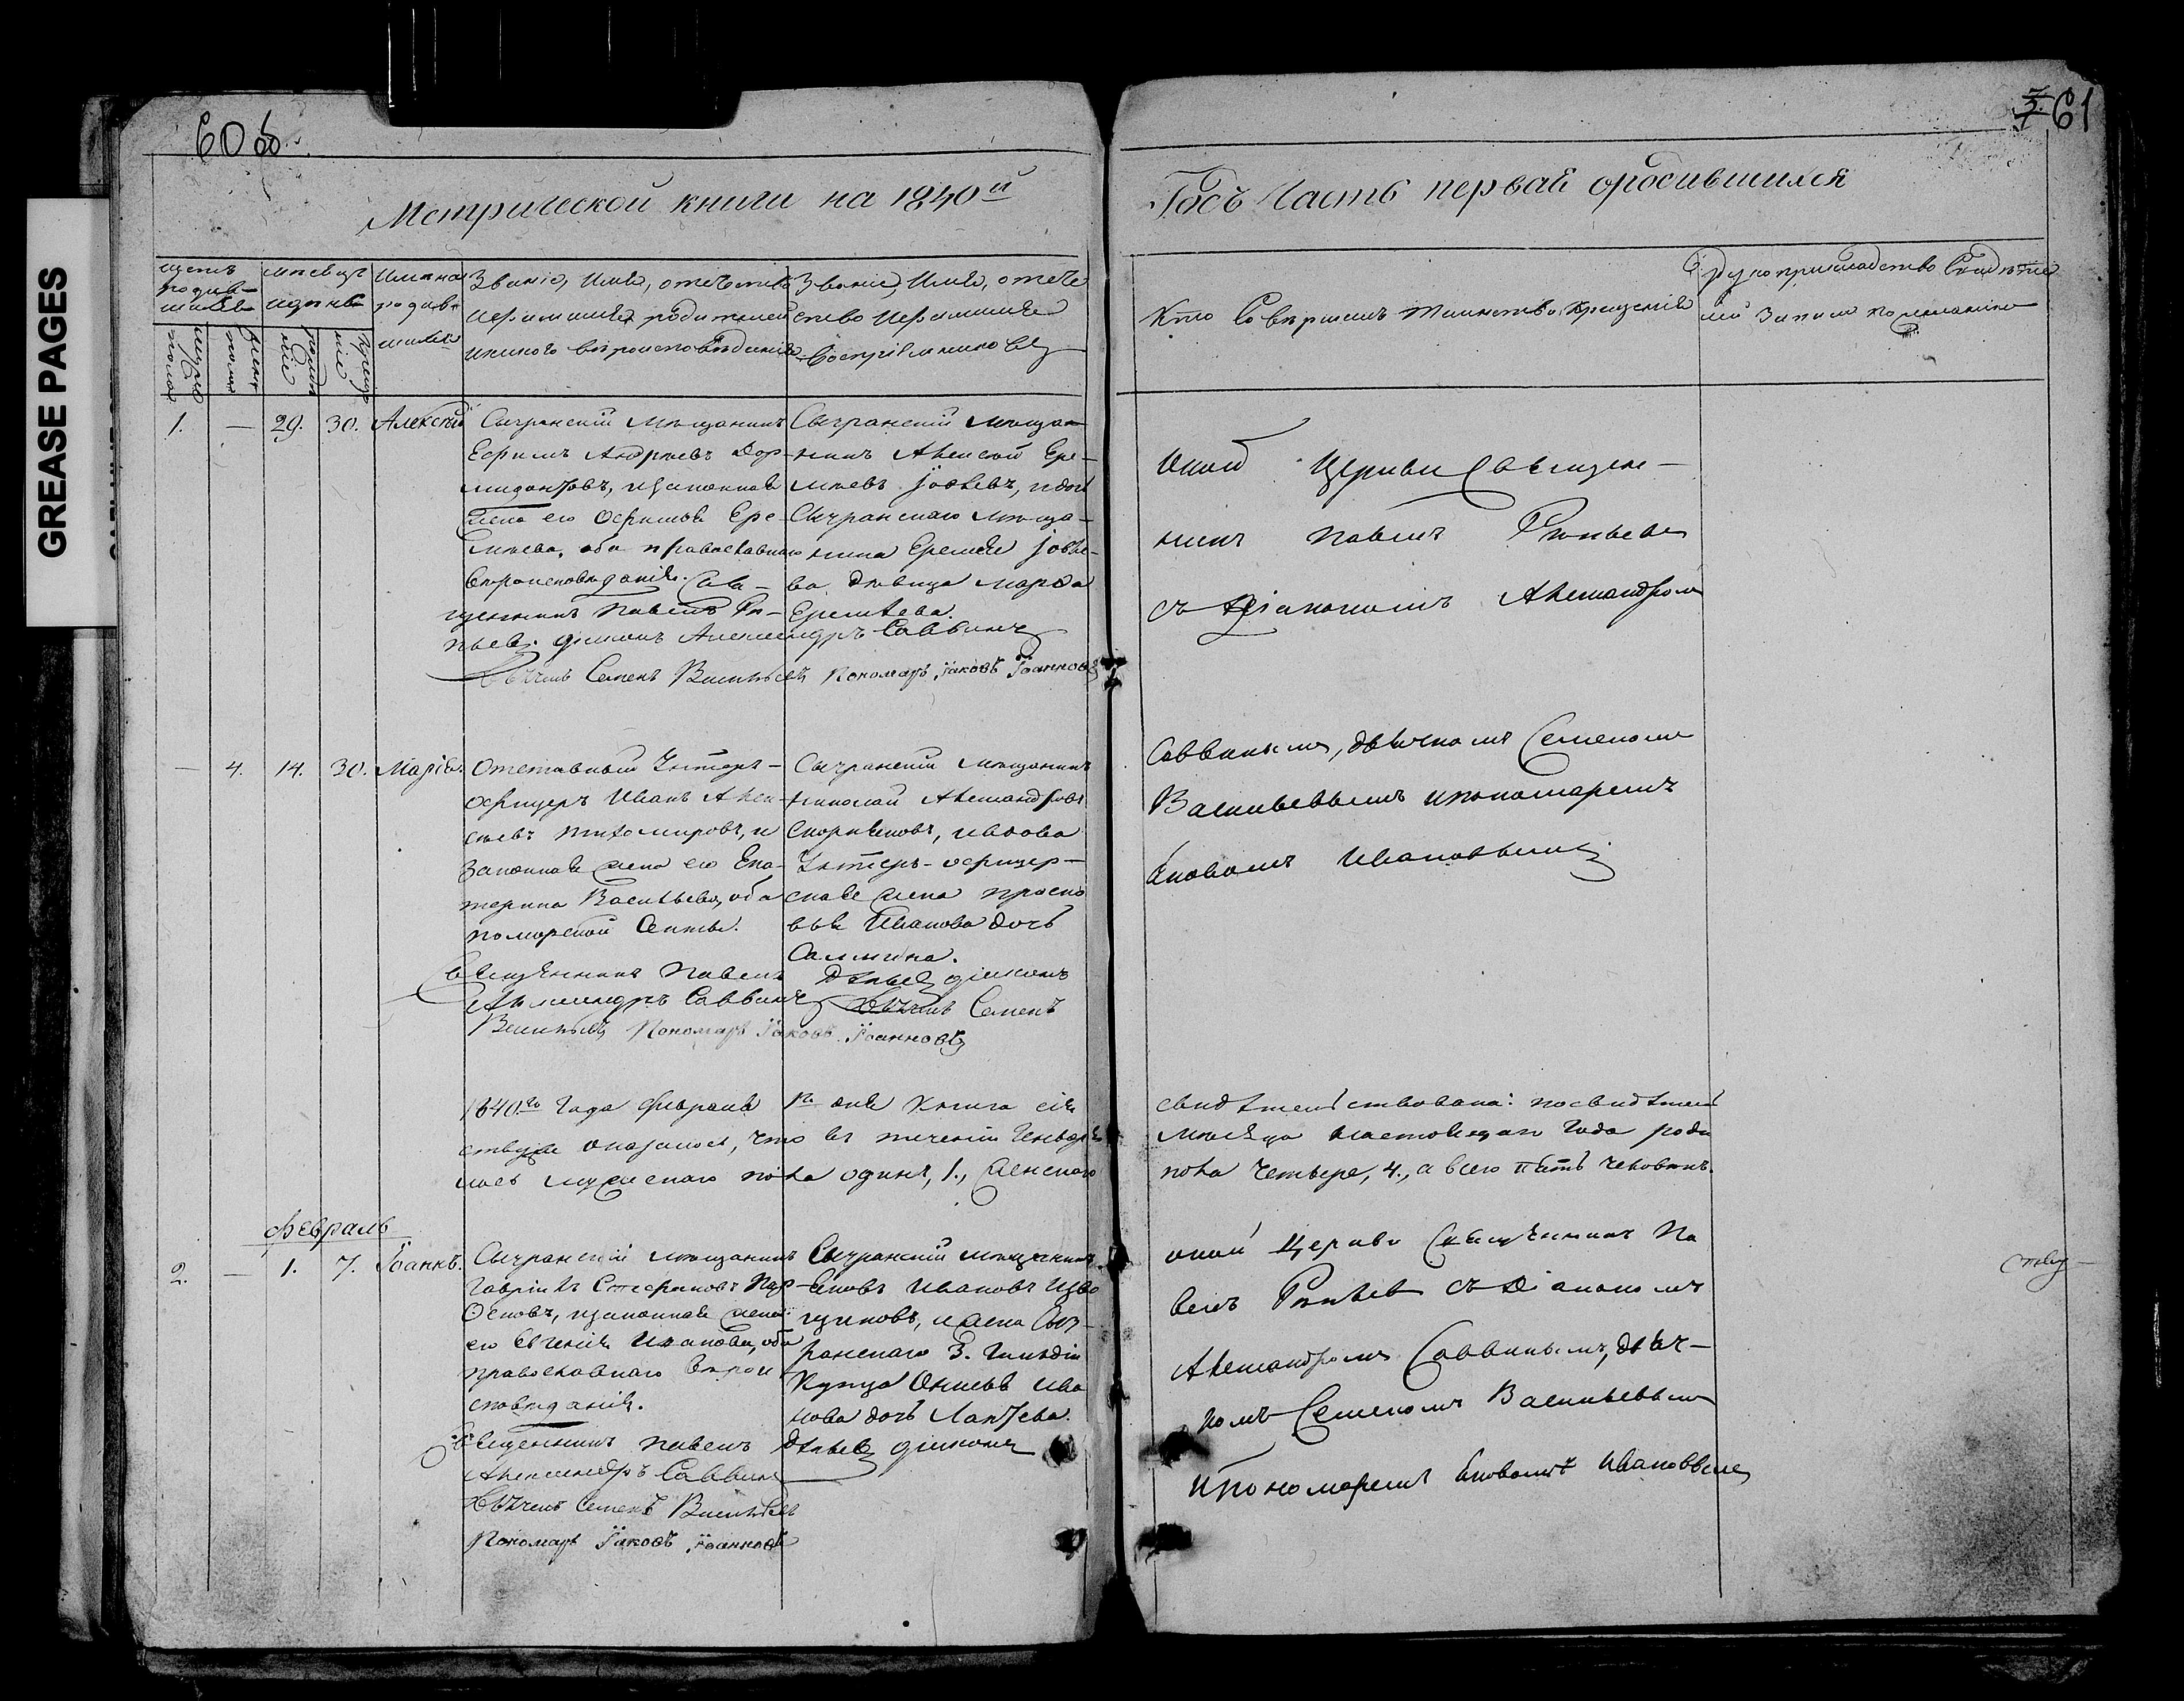 GREASE PAGES
60 об.
61
Метрической книги на 1840й
Годъ Часть первая ородившихся
щетъ
родив-
шихся
мужеска
пола
женска
пола
мѣсяцъ
идень
рожде
нія
креще
нія
Имяна
родив-
шихся
Званіе, Имя, отечество
ифамилія родителей
икакого вѣроисповѣданія
Званіе, Имя, отече
ство ифамилія
воспріемниковъ
Кто Совершалъ таинство крещенія
Рукоприкладство Свидѣте
лей записи по желанію
1. — 29. 30. Алексѣй
Сызранскій мѣщанинъ
Ефимъ Андреевъ Дор-
мидонтовъ, изаконная
жена его Офимья Ере-
мѣева, оба православнаго
вѣроисповѣданія. Свя-
щенникъ Павелъ
діаконъ Александръ Саввинъ
Дьячекъ Семенъ Васильевъ Пономарь Іаковъ Іоанновъ
Сызранскій мѣщан-
нинъ Алексѣй Ере-
мѣевъ Іовлевъ, идочь
Сызранскаго мѣща-
нина Еремея Іовле-
ва дѣвица Марфа
Еремѣева.
оной Церкви Священ-
никъ Павелъ
съ діакономъ Александромъ
Саввинымъ, дьячкомъ Семеномъ
Васильевымъ ипономаремъ
Яковомъ Ивановымъ
— 4. 14. 30. Марія.
Отставный Унтеръ-
офицеръ Иванъ Алек-
сѣевъ Тихомировъ, и
законная жена его Ека-
терина Васильева, оба
поморской Секты.
Священникъ Павелъ діаконъ
Александръ Саввинъ Дьячекъ Семенъ
Васильевъ Пономарь Іаковъ Іоанновъ
Сызранскій мѣщанинъ
Николай Александровъ
Скорняковъ, ивдова
Унтеръ-офицер-
ская жена Праско
вья Иванова дочь
1840го Года февраля 1го дня Книга сія свидѣтельствована: посвидѣтель
ству оказалось, что въ теченіи Генваря мѣсяца настоящаго Года роди
лось мужескаго пола одинъ, 1., женскаго пола четыре, 4., а всего пять человѣкъ.
Февраль
2. — 1. 7. Іоаннъ.
Сызранскій мѣщанинъ
Гаврилъ Стефановъ Пар-
ѳеновъ, изаконная жена
его Евгенія Иванова, оба
православнаго вѣрои
сповѣданія.
Священникъ Павелъ діаконъ
Александръ Саввинъ
Дьячекъ Семенъ Васильевъ
Пономарь Іаковъ Іоанновъ
Сызранскій мѣщанинъ
Яковъ Ивановъ Изво
щиковъ, ижена Сыз-
ранскаго 3. Гильдіи
Купца Ива
нова дочь Лаптева.
оной Церкви Священникъ Па
велъ съ Діакономъ
Александромъ Саввинымъ, дьяч-
комъ Семеномъ Васильевымъ
ипономаремъ Яковомъ Ивановымъ